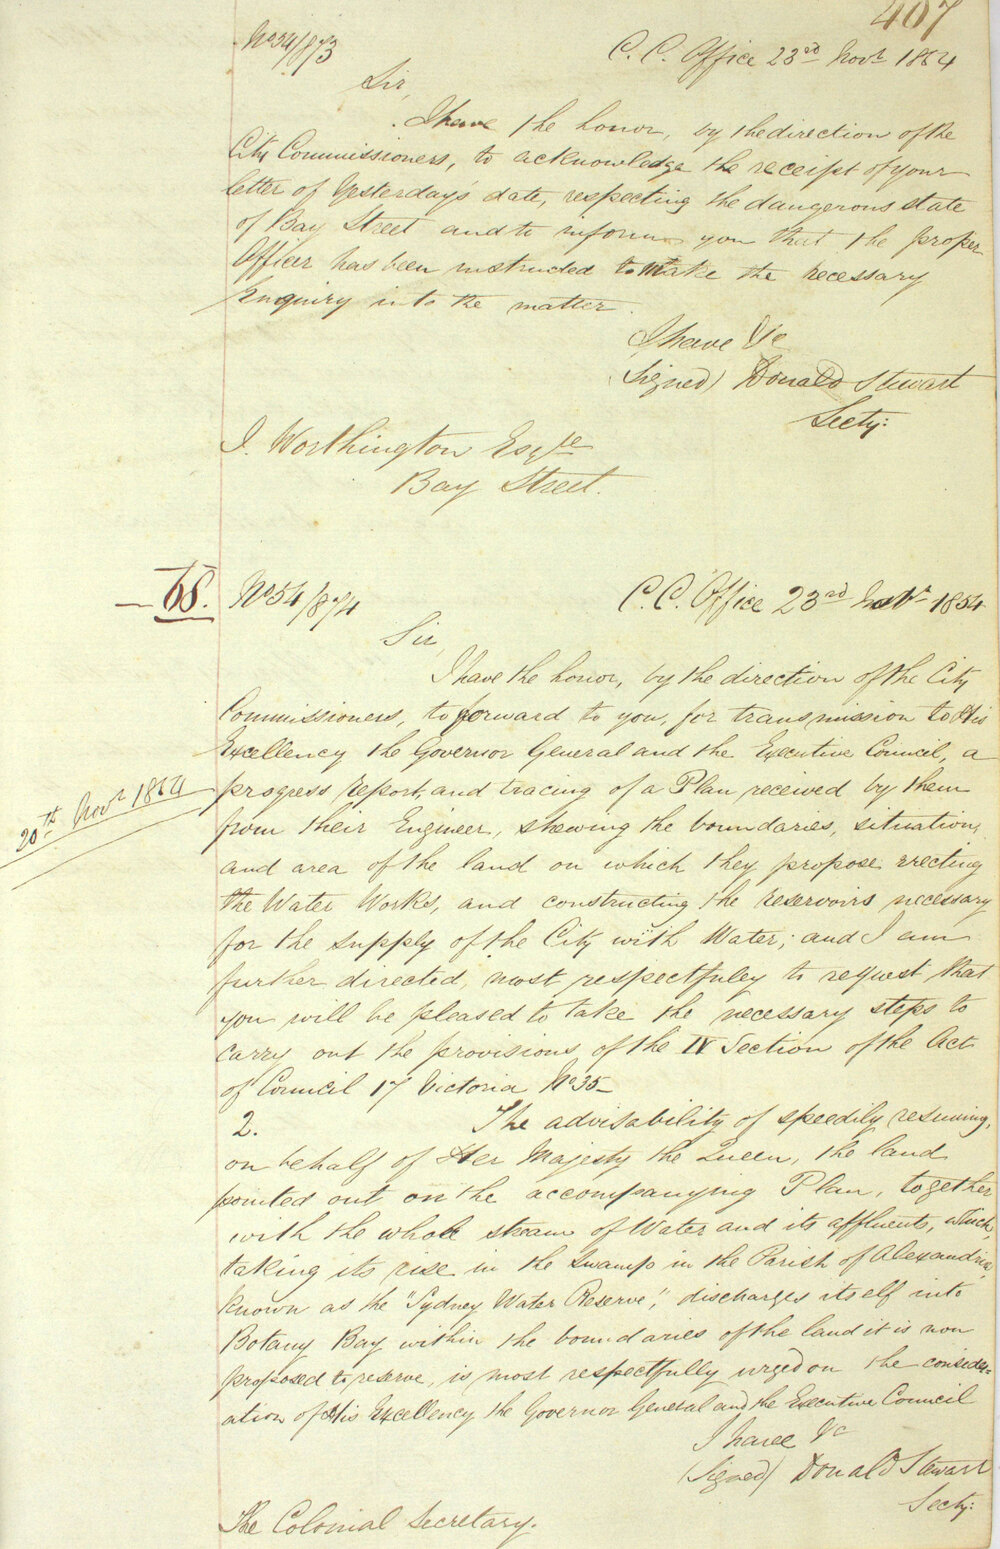 407
No 54/873
C. C. Office 23rd Novr 1854
Sir,
I have the honor, by the direction of the
City Commissioners, to acknowledge the receipt of your
letter of Yesterday's date, respecting the dangerous state
of Bay Street and to inform you that the proper
Officer has been instructed to make the necessary
Enquiry into the matter.
I have &c
(Signed) Donald Stewart
Secty:
J. Worthington Esqre
Bay Street.
68.
No 54/874
C. C. Office 23rd Novr 1854
Sir,
I have the honor, by the direction of the City
Commissioners, to forward to you, for transmission to His
Excellency the Governor General and the Executive Council, a
progress report, and tracing of a Plan received by them
20th Novr 1854
from their Engineer, shewing the boundaries, situation,
and area of the land on which they propose erecting
the Water Works, and constructing the reservoirs necessary
for the supply of the City with Water; and I am
further directed, most respectfully to request that
you will be pleased to take the necessary steps to
carry out the provisions of the IV Section of the Act
of Council 17 Victoria No 35_
2. The advisability of speedily resuming,
on behalf of Her Majesty the Queen, the land
pointed out on the accompanying Plan, together
with the whole stream of Water and its affluents, which,
taking its rise in the Swamp in the Parish of Alexandria,
known as the "Sydney Water Reserve", discharges itself into
Botany Bay within the boundaries of the land it is now
proposed to reserve, is most respectfully urged on the consider=
ation of His Excellency the Governor General and the Executive Council
I have &c
(Signed) Donald Stewart
Secty:
The Colonial Secretary.